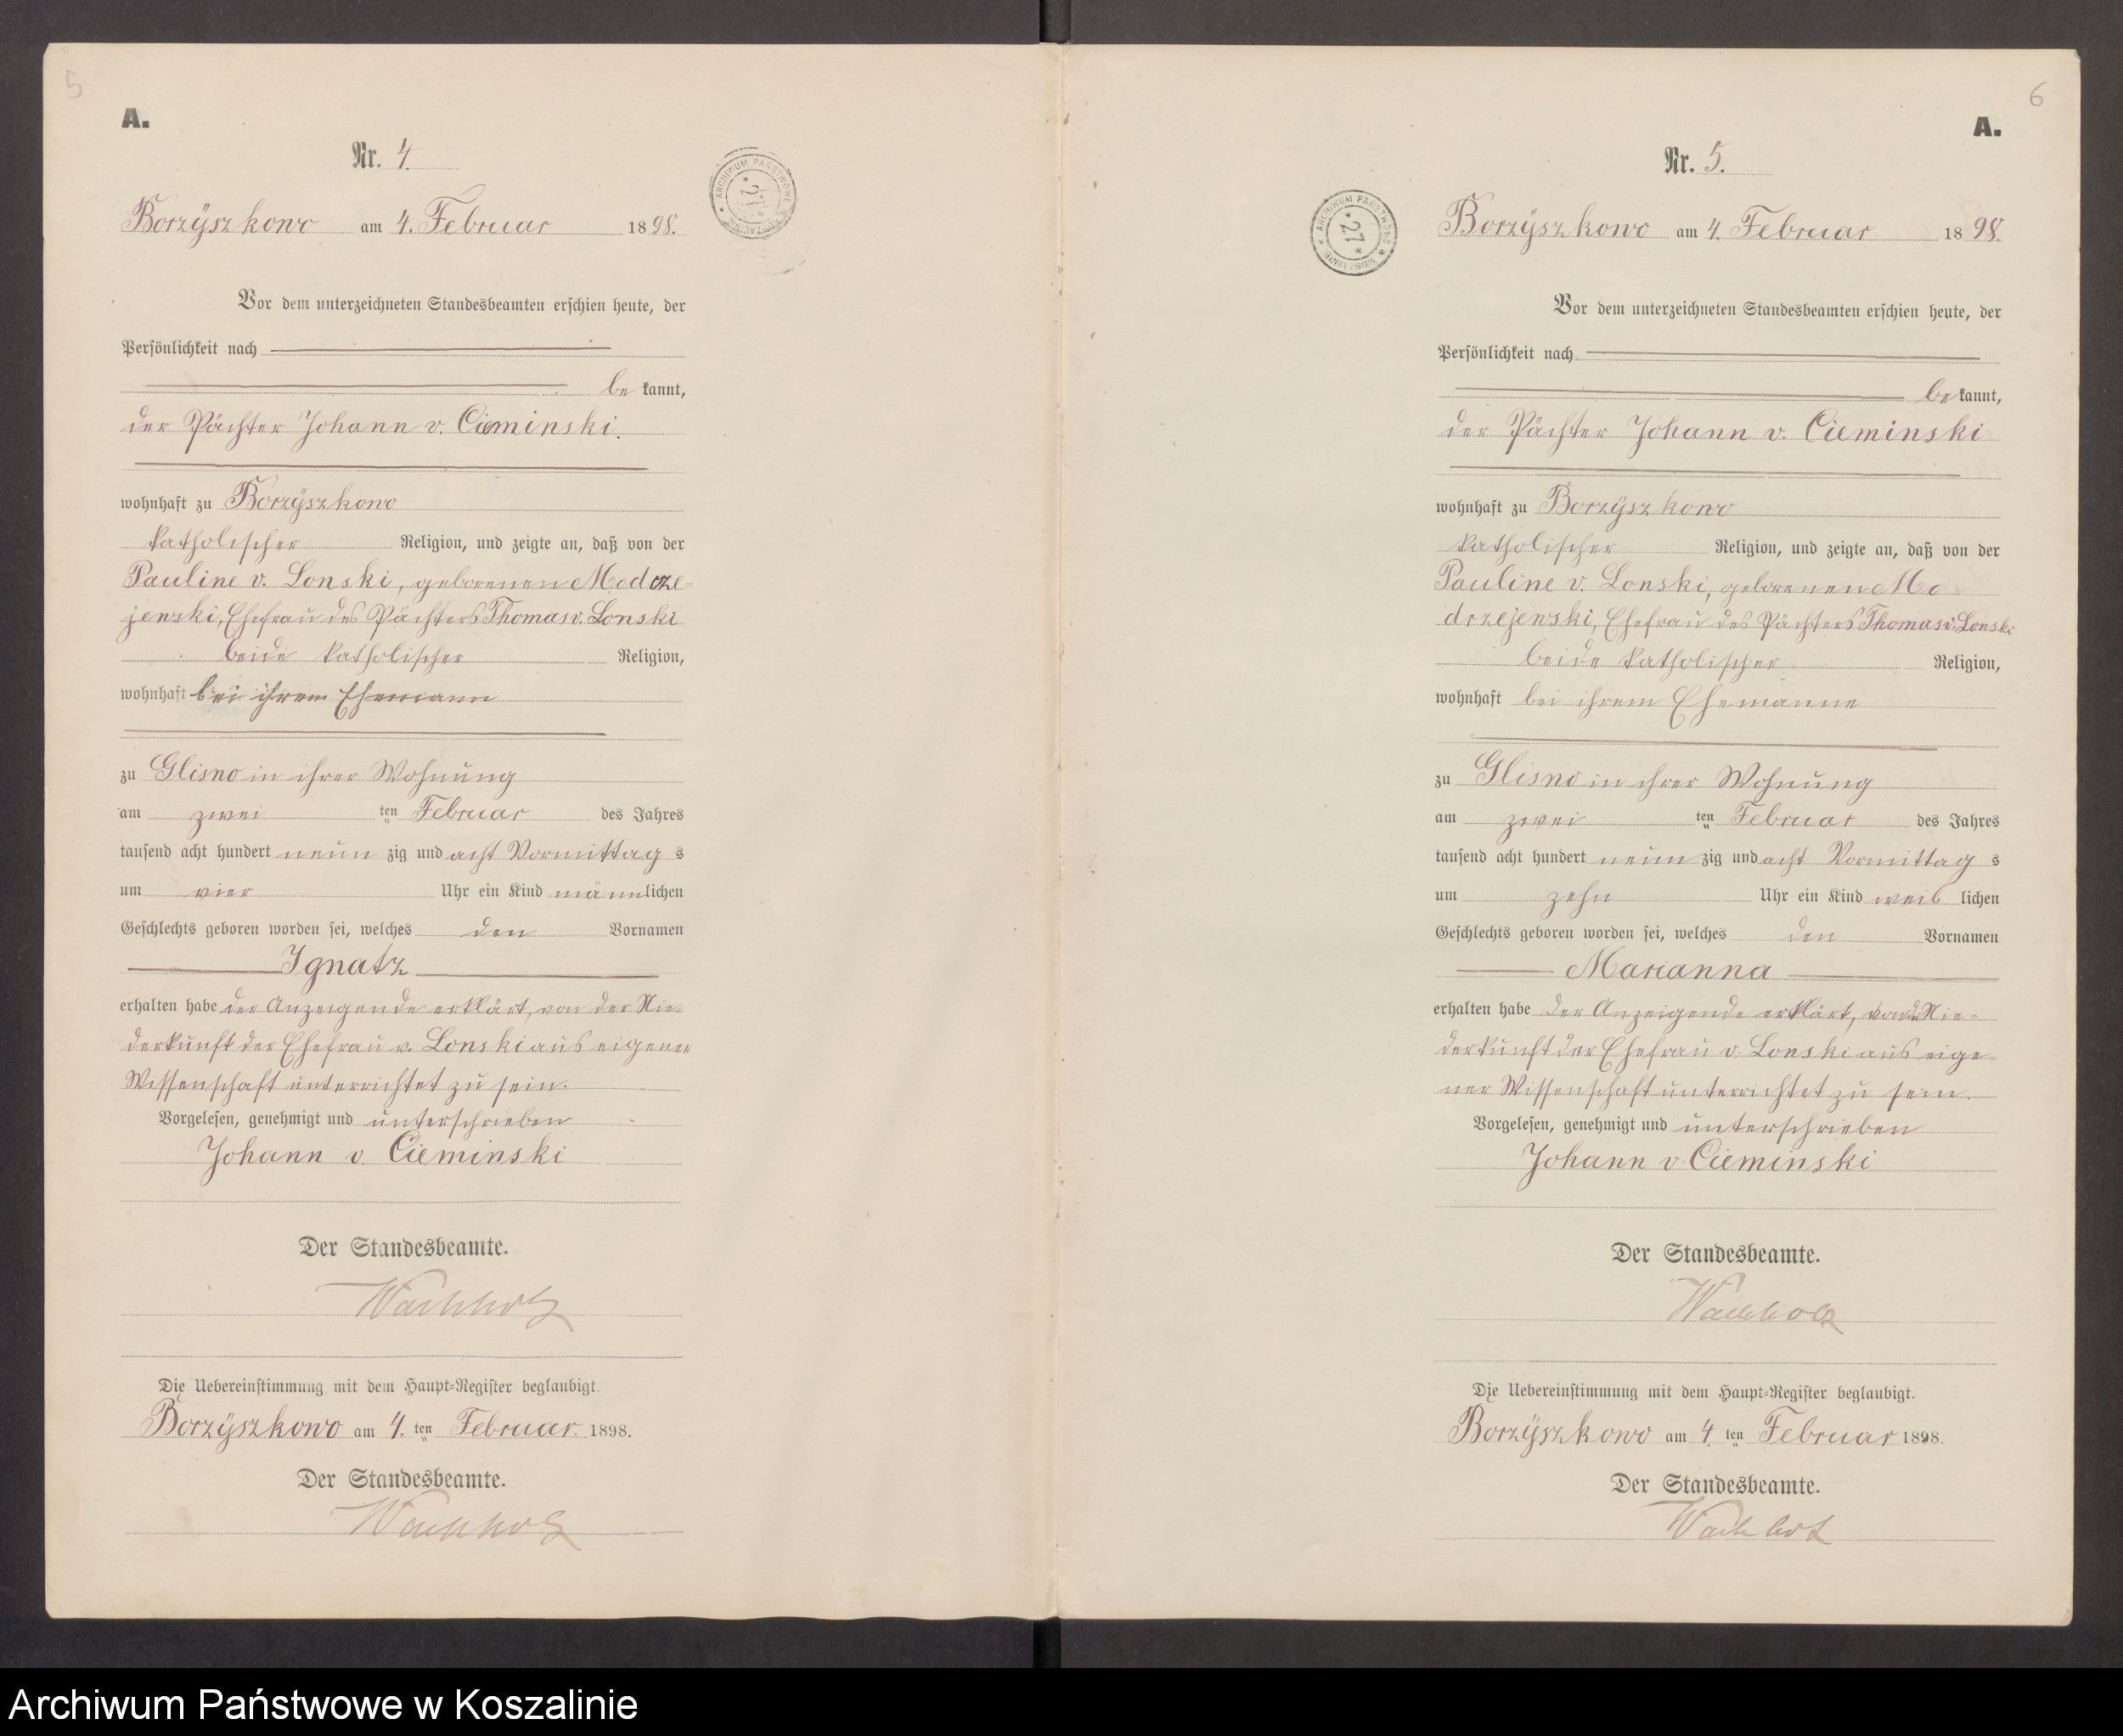 5
A.
Nr. 4.
Borzÿszkowo am 4. Februar 1898.
Vor dem unterzeichneten Standesbeamten erschien heute, der
Persönlichkeit nach
be kannt,
der Pächter Johann v. Cieminski.
wohnhaft zu Borzÿszkowo
katholischer Religion, und zeigte an, daß von der
Pauline v. Lonski, geborenen Modrze=
jewski, Ehefrau des Pächters Thomas v. Lonski
beide katholischer Religion,
wohnhaft bei ihrem Ehemann
zu Glisno in ihrer Wohnung
am zwei ten Februar des Jahres
tausend acht hundert neun zig und acht Vormittag s
um vier Uhr ein Kind männlichen
Geschlechts geboren worden sei, welches den Vornamen
Ignatz
erhalten habe der Anzeigende erklärt, von der Nie=
derkunft der Ehefrau v. Lonski aus eigener
Wissenschaft unterrichtet zu sein.
Vorgelesen, genehmigt und unterschrieben
Johann v. Cieminski
Der Standesbeamte.
Wachholz
Die Uebereinstimmung mit dem Haupt=Register beglaubigt.
Borzÿszkowo am 4. ten Februar. 1898.
Der Standesbeamte.
Wachholz
ARCHIWUM PAŃSTWOWE KOSZALINIE
27
6
A.
Nr. 5.
Borzÿszkowo am 4. Februar 1898.
Vor dem unterzeichneten Standesbeamten erschien heute, der
Persönlichkeit nach
be kannt,
der Pächter Johann v. Cieminski
wohnhaft zu Borzÿszkowo
katholischer Religion, und zeigte an, daß von der
Pauline v. Lonski, geborenen Mo=
drzejewski, Ehefrau des Pächters Thomas v. Lonski
beide katholischer Religion,
wohnhaft bei ihrem Ehemanne
zu Glisno in ihrer Wohnung
am zwei ten Februar des Jahres
tausend acht hundert neun zig und acht Vormittag s
um zehn Uhr ein Kind weib lichen
Geschlechts geboren worden sei, welches den Vornamen
Marianna
erhalten habe der Anzeigende erklärt, von der Nie=
derkunft der Ehefrau v. Lonski aus eige=
ner Wissenschaft unterrichtet zu sein.
Vorgelesen, genehmigt und unterschrieben
Johann v. Cieminski
Der Standesbeamte.
Wachholz
Die Uebereinstimmung mit dem Haupt=Register beglaubigt.
Borzÿszkowo am 4 ten Februar 1898.
Der Standesbeamte.
Wachholz
ARCHIWUM PAŃSTWOWE KOSZALINIE
27
Archiwum Państwowe w Koszalinie